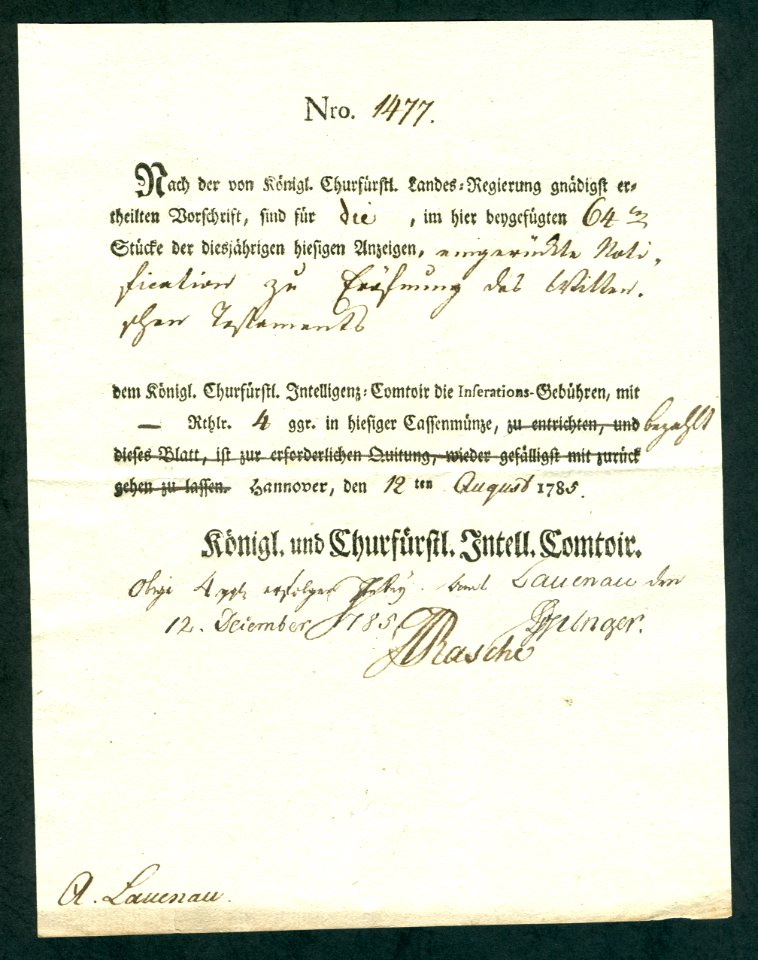 Nro. 1477.
Nach der von Königl. Churfürstl. Landes-Regierung gnädigst er-
theilten Vorschrift, sind für die , im hier beygefügten 64
Stücke der diesjährigen hiesigen Anzeigen, eingerückte Noti-
fication zu Eröfnung des Witten-
schen Testaments
dem Königl. Churfürstl. Intelligenz-Comtoir die Inserations-Gebühren, mit
— Rthlr. 4 ggr. in hiesiger Cassenmünze, zu entrichten, und bezahlt
dieses Blatt, ist zur erforderlichen Quitung, wieder gefälligst mit zurück
gehen zu lassen. Hannover, den 12 ten August 1785.
Königl. und Churfürstl. Intell. Comtoir.
4 ggr erfolgen Amt Lauenau den
12. December 1785.
Rasche
A. Lauenau.